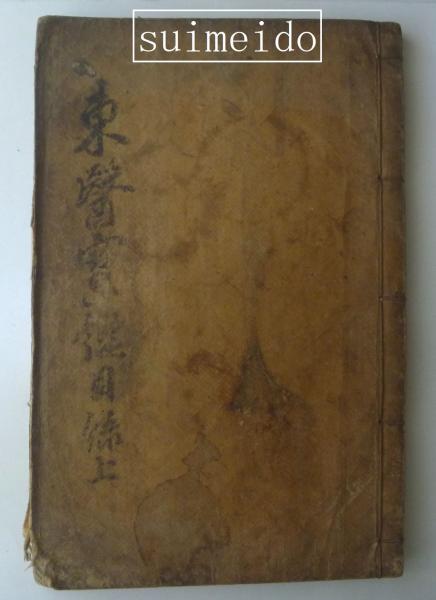 suimeido
東醫寶鑑目錄上